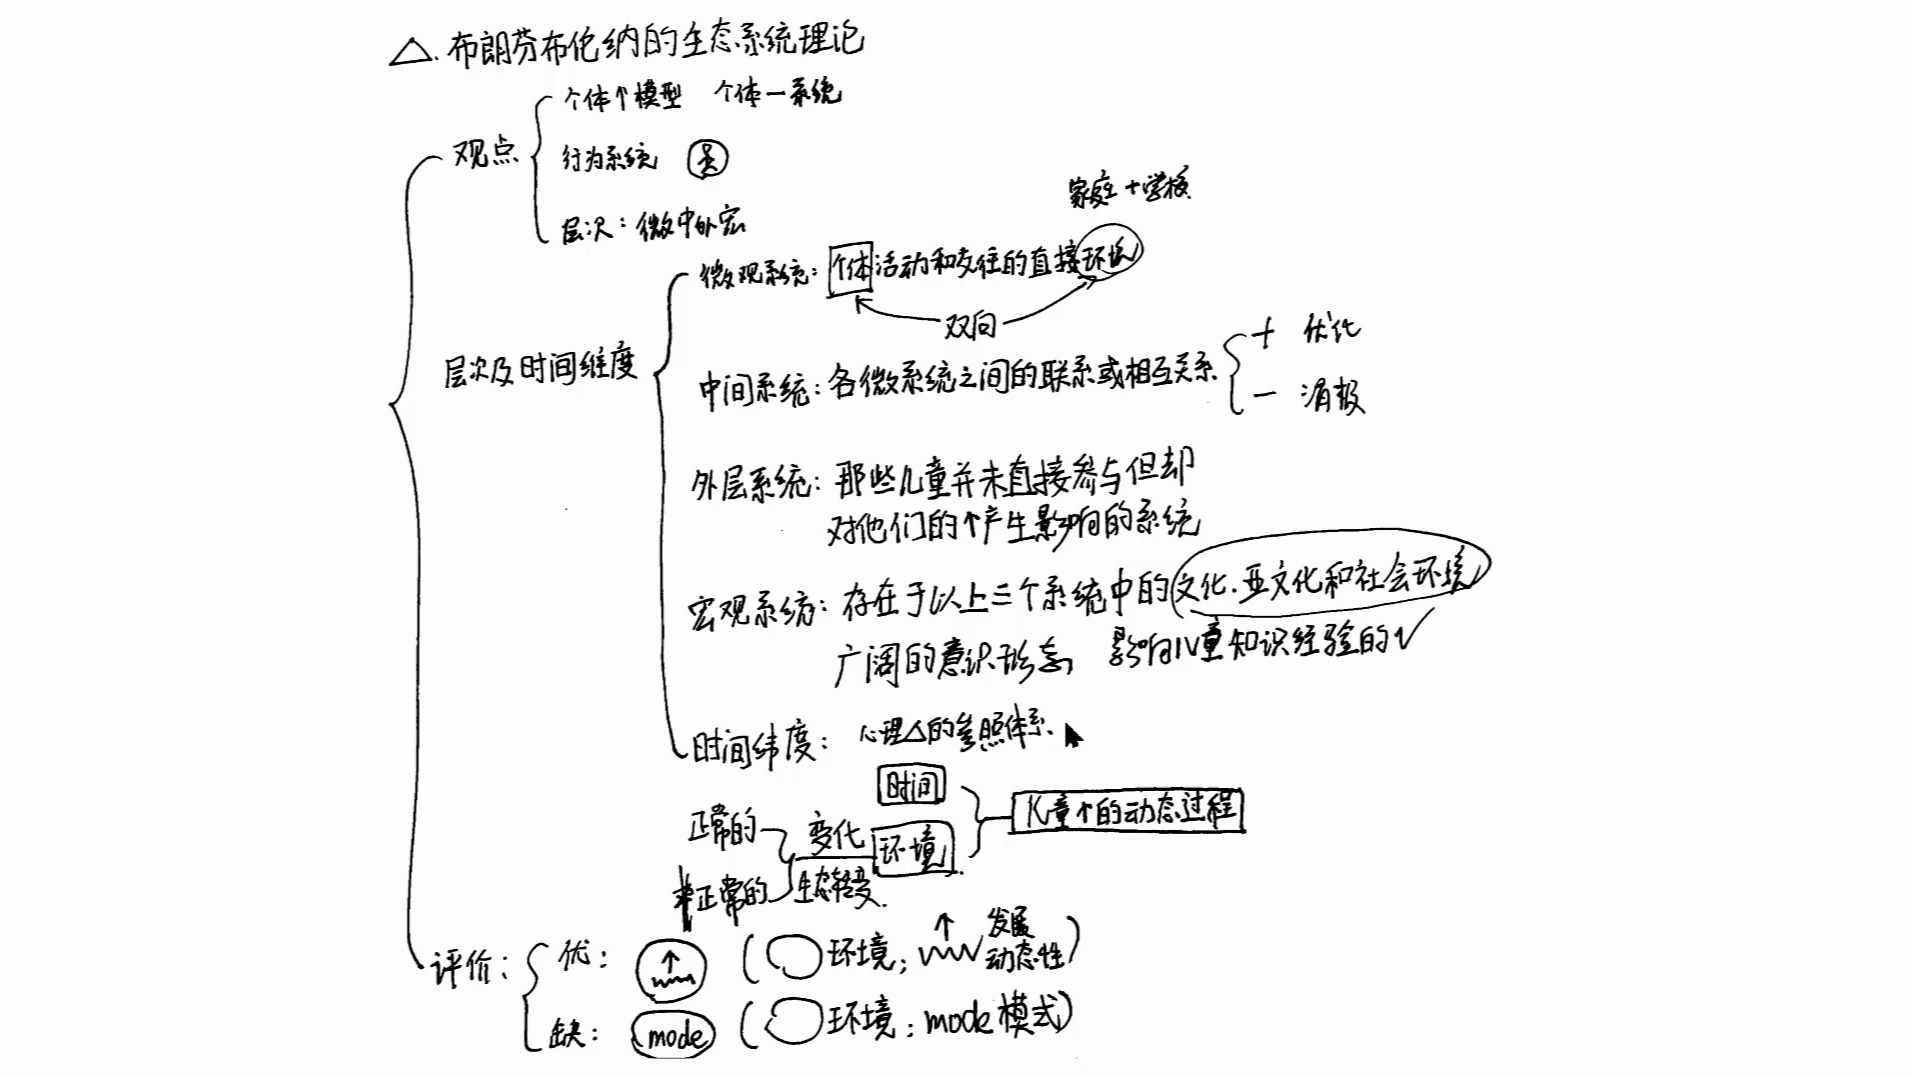 △. 布朗芬布伦纳的生态系统理论
个体↑模型 个体—系统
观点
行为系统
层次：微中外宏
家庭+学校
微观系统：个体活动和交往的直接环境
双向
层次及时间维度
中间系统：各微系统之间的联系或相互关系
+ 优化
— 消极
外层系统：那些儿童并未直接参与但却
对他们的↑产生影响的系统
宏观系统：存在于以上三个系统中的文化.亚文化和社会环境
广阔的意识形态 影响儿童知识经验的√
时间纬度：心理△的参照体系.
时间
儿童↑的动态过程
正常的 变化 环境
非正常的 生态转变.
评价：
优：↑ (○环境；↑ 发展
动态性)
缺：mode (○环境；mode模式)